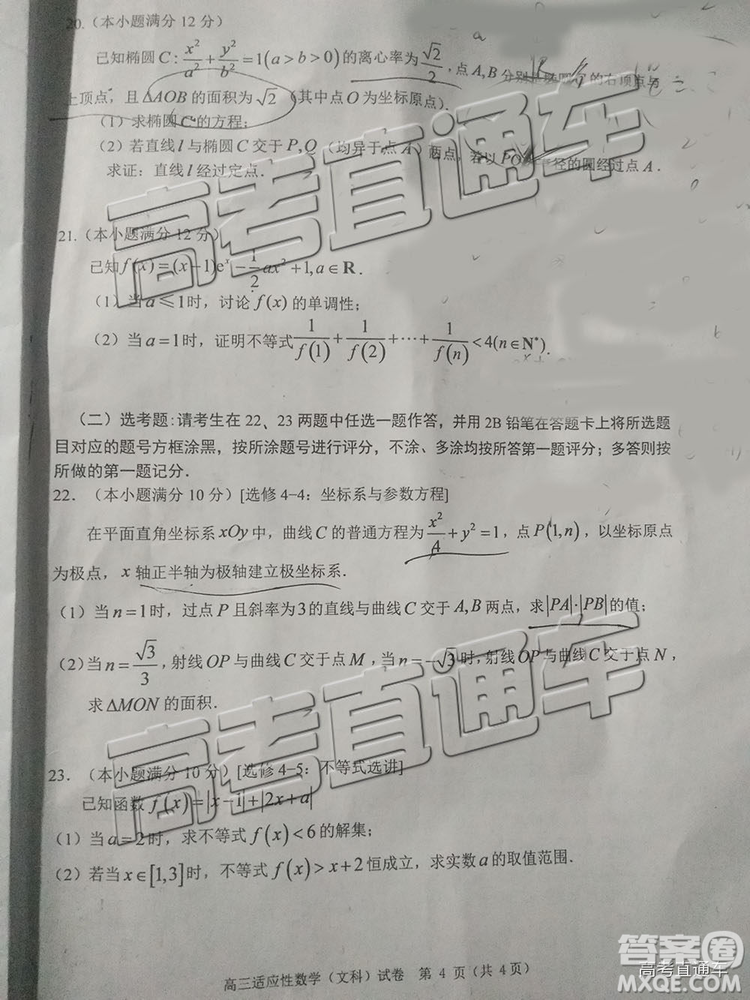 20.（本小题满分 12 分）
已知椭圆 C: x²/a² + y²/b² = 1(a > b > 0) 的离心率为 √2/2，点 A,B 分别 的右顶点与
上顶点，且 ΔAOB 的面积为 √2（其中点 O 为坐标原点）.
（1）求椭圆 C 的方程；
（2）若直线 l 与椭圆 C 交于 P,Q（均异于点 A）两点，若以 PQ 径的圆经过点 A．
求证：直线 l 经过定点．
21.（本小题满分 12 分）
已知 f(x) = (x−1)eˣ − 1/2 ax² + 1, a ∈ R．
（1）当 a ≤ 1 时，讨论 f(x) 的单调性；
（2）当 a = 1 时，证明不等式 1/f(1) + 1/f(2) + ⋯ + 1/f(n) < 4(n ∈ N*)．
（二）选考题：请考生在 22、23 两题中任选一题作答，并用 2B 铅笔在答题卡上将所选题
目对应的题号方框涂黑，按所涂题号进行评分，不涂、多涂均按所答第一题评分；多答则按
所做的第一题记分．
22．（本小题满分 10 分）[选修 4-4：坐标系与参数方程]
在平面直角坐标系 xOy 中，曲线 C 的普通方程为 x²/4 + y² = 1，点 P(1,n)，以坐标原点
为极点，x 轴正半轴为极轴建立极坐标系．
（1）当 n = 1 时，过点 P 且斜率为 3 的直线与曲线 C 交于 A,B 两点，求 |PA|·|PB| 的值；
（2）当 n = √3/3，射线 OP 与曲线 C 交于点 M，当 n = −√3 时，射线 OP 与曲线 C 交于点 N，
求 ΔMON 的面积．
23．（本小题满分 10 分）[选修 4-5：不等式选讲]
已知函数 f(x) = |x−1| + |2x+a|
（1）当 a = 2 时，求不等式 f(x) < 6 的解集；
（2）若当 x ∈ [1,3] 时，不等式 f(x) > x + 2 恒成立，求实数 a 的取值范围．
高三适应性数学（文科）试卷 第 4 页（共 4 页）
高考直通车
高考直通车
答案圈
高考直通车
MXQE.COM